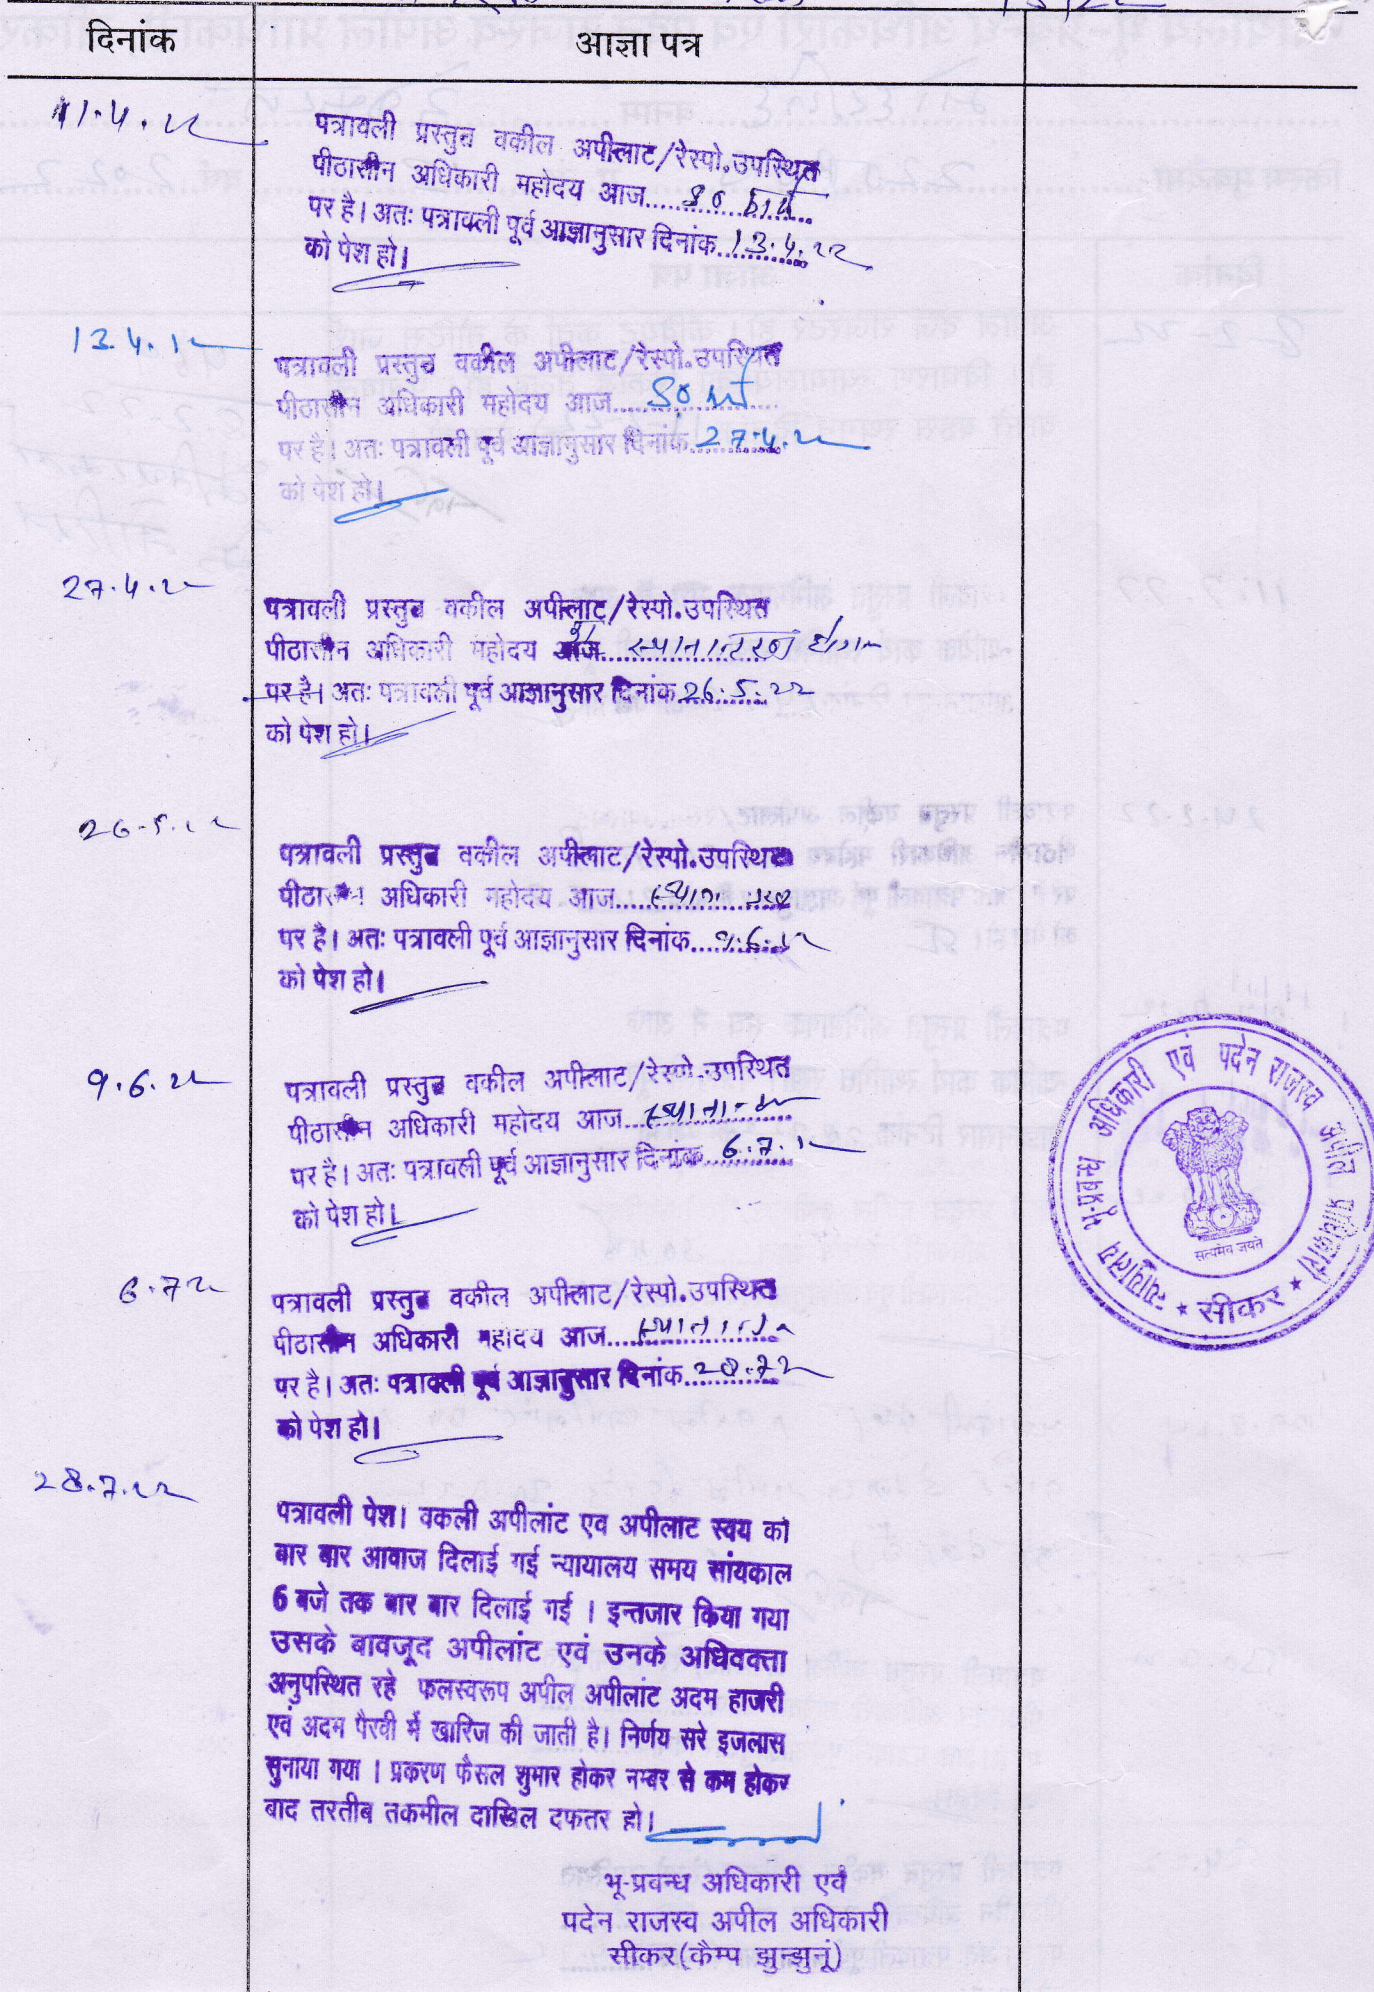 दिनांक
आज्ञा पत्र
11.4.22
पत्रावली प्रस्तुत वकील अपीलाट/रेस्पो.उपस्थित
पीठासीन अधिकारी महोदय आज......
पर है। अतः पत्रावली पूर्व आज्ञानुसार दिनांक 13.4.22
को पेश हो।
13.4.22
पत्रावली प्रस्तुत वकील अपीलाट/रेस्पो.उपस्थित
पीठासीन अधिकारी महोदय आज......
पर है। अतः पत्रावली पूर्व आज्ञानुसार दिनांक 27.4.22
को पेश हो।
27.4.22
पत्रावली प्रस्तुत वकील अपीलाट/रेस्पो.उपस्थित
पीठासीन अधिकारी महोदय आज......
पर है। अतः पत्रावली पूर्व आज्ञानुसार दिनांक 26.5.22
को पेश हो।
26.5.22
पत्रावली प्रस्तुत वकील अपीलाट/रेस्पो.उपस्थित
पीठासीन अधिकारी महोदय आज......
पर है। अतः पत्रावली पूर्व आज्ञानुसार दिनांक 9.6.22
को पेश हो।
9.6.22
पत्रावली प्रस्तुत वकील अपीलाट/रेस्पो.उपस्थित
पीठासीन अधिकारी महोदय आज......
पर है। अतः पत्रावली पूर्व आज्ञानुसार दिनांक 6.7.22
को पेश हो।
न्यायालय भू-प्रबन्ध अधिकारी एवं पदेन राजस्व अपील प्राधिकारी
सत्यमेव जयते
★ सीकर ★
6.7.22
पत्रावली प्रस्तुत वकील अपीलाट/रेस्पो.उपस्थित
पीठासीन अधिकारी महोदय आज......
पर है। अतः पत्रावली पूर्व आज्ञानुसार दिनांक 28.7.22
को पेश हो।
28.7.22
पत्रावली पेश। वकली अपीलांट एव अपीलाट स्वय को
बार बार आवाज दिलाई गई न्यायालय समय सांयकाल
6 बजे तक बार बार दिलाई गई । इन्तजार किया गया
उसके बावजूद अपीलांट एवं उनके अधिवक्ता
अनुपस्थित रहे फलस्वरूप अपील अपीलांट अदम हाजरी
एवं अदम पैरवी में खारिज की जाती है। निर्णय सरे इजलास
सुनाया गया । प्रकरण फैसल शुमार होकर नम्बर से कम होकर
बाद तरतीब तकमील दाखिल दफतर हो।
भू-प्रवन्ध अधिकारी एवं
पदेन राजस्व अपील अधिकारी
सीकर(कैम्प झुन्झुनूं)